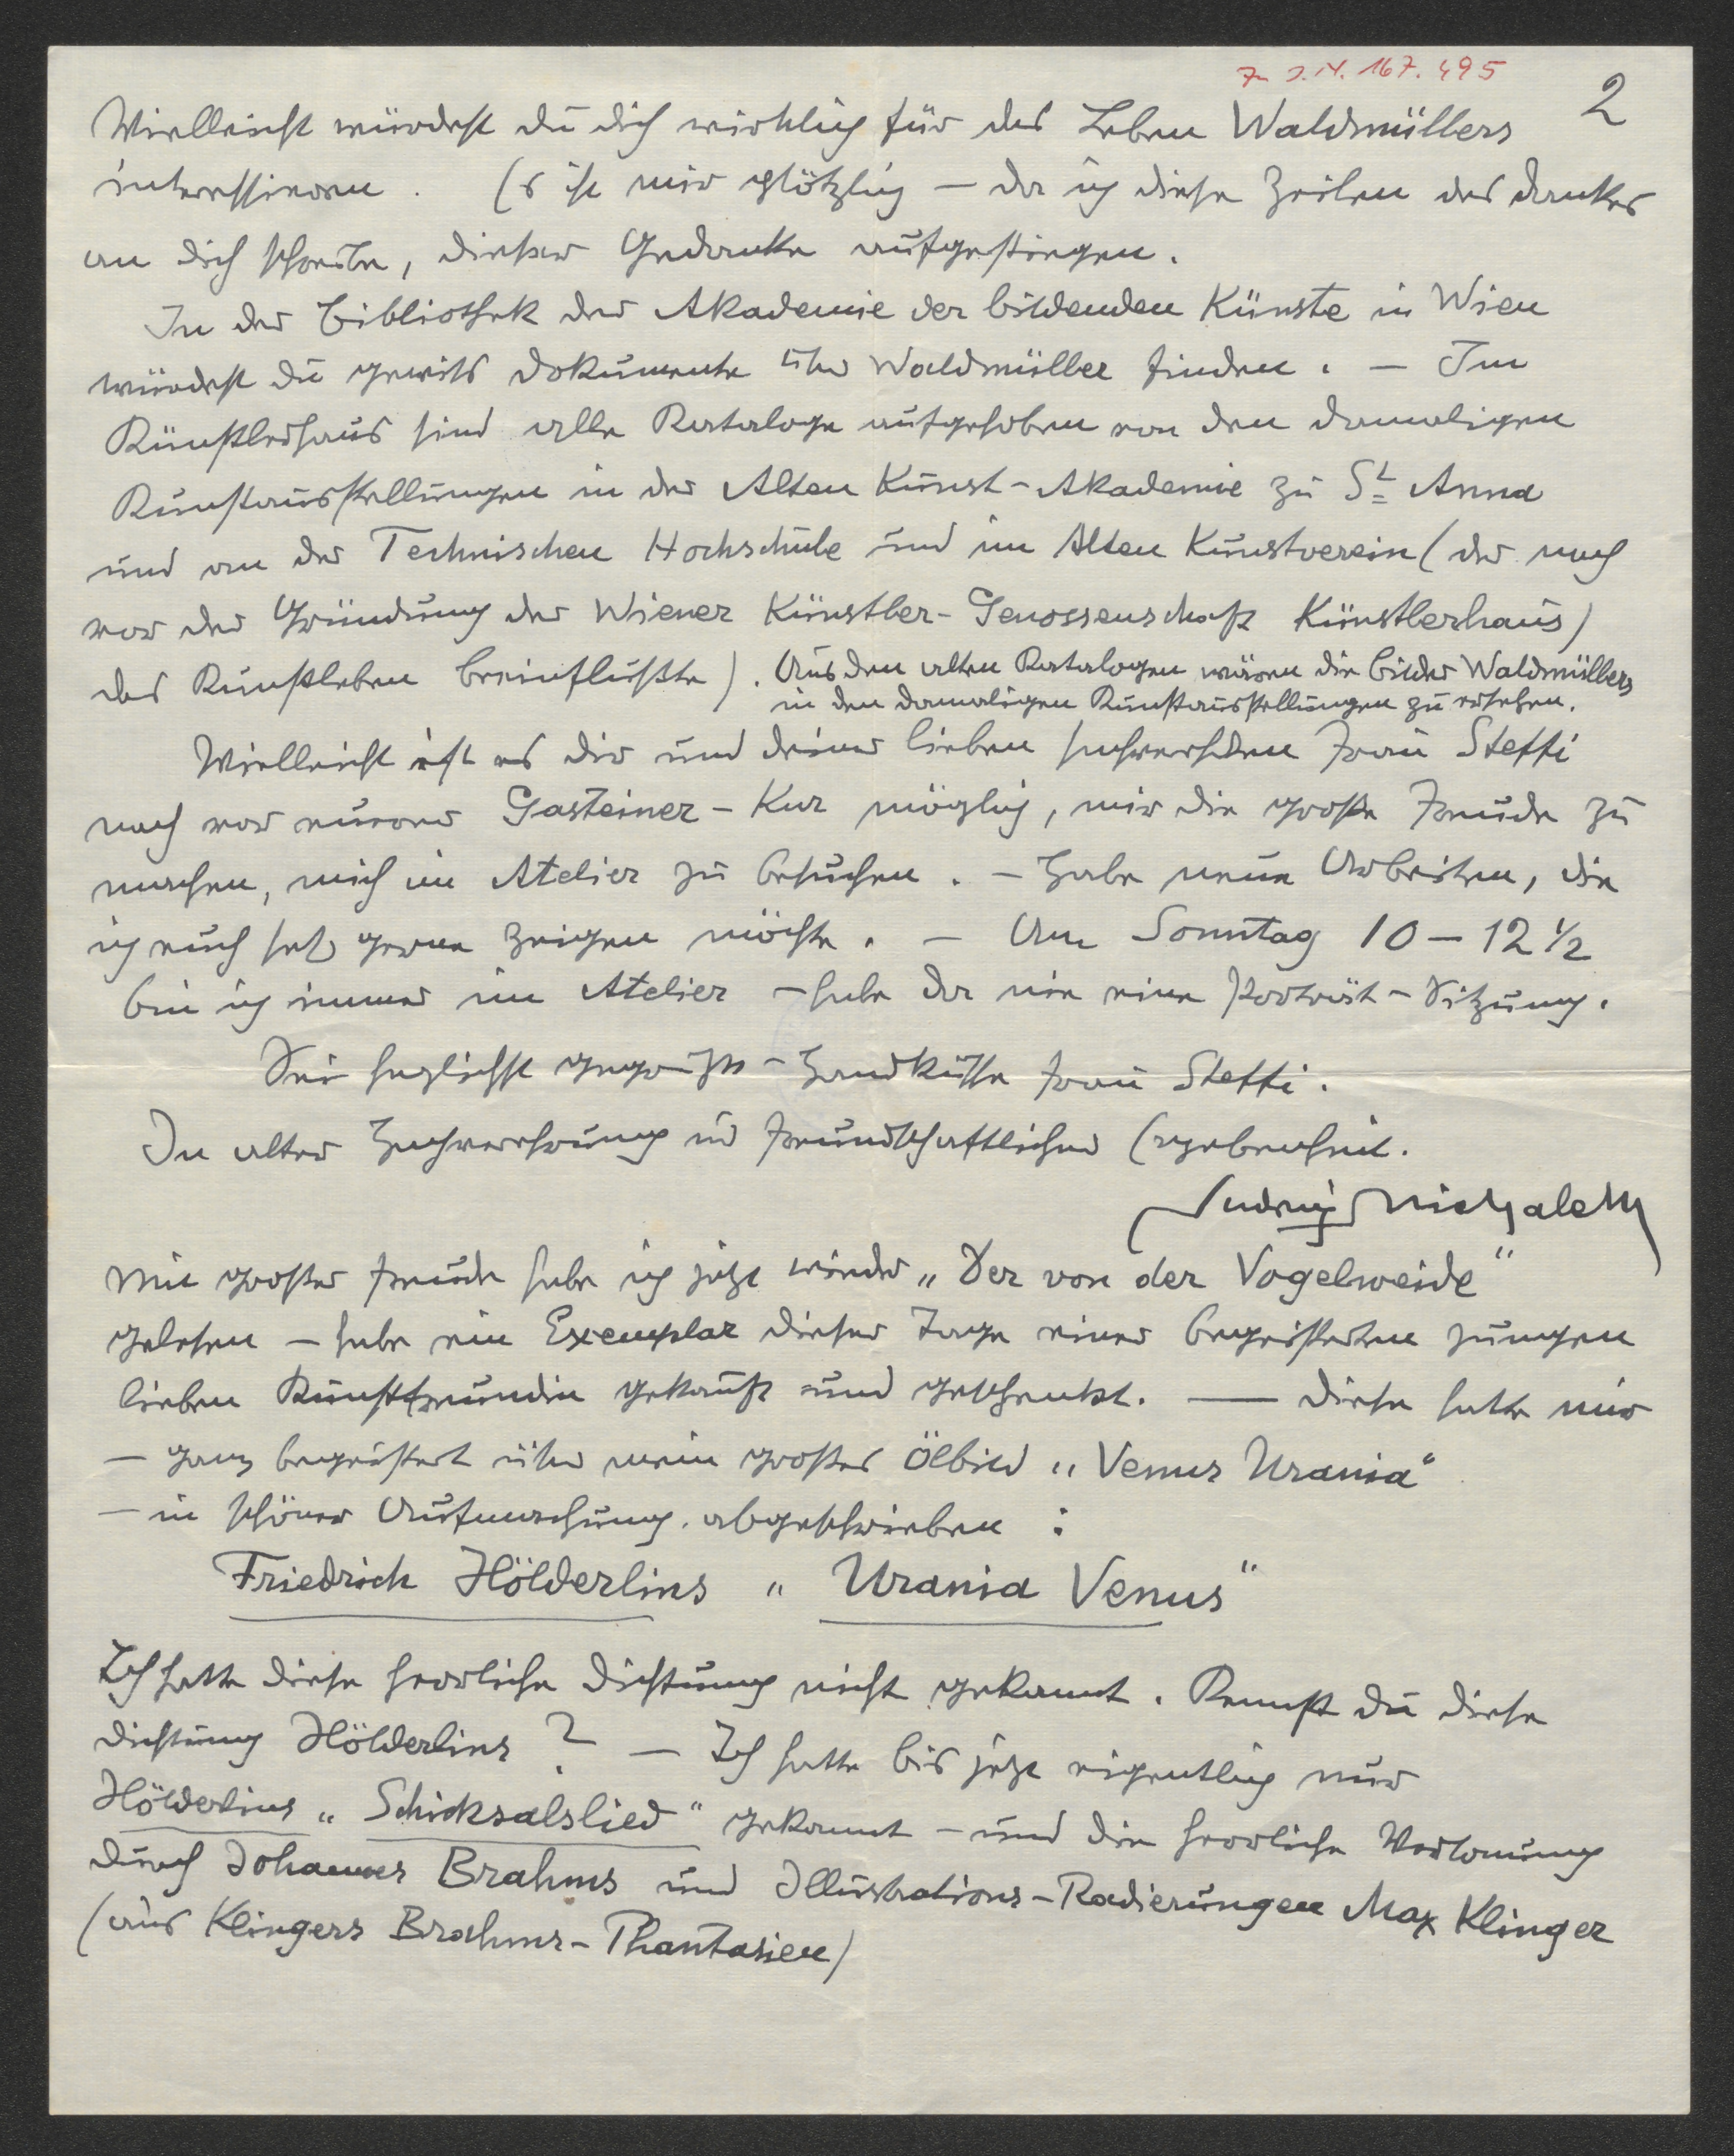 Zu I.N. 167.495
2
Vielleicht würdest du dich wirklich für das Leben Waldmüllers
interessieren. Es ist mir plötzlich – da ich diese Zeilen des Dankes
an dich schreibe, dieser Gedanke aufgestiegen.
In der Bibliothek der Akademie der bildenden Künste in Wien
würdest du gewiß Dokumente über Waldmüller finden. – Im
Künstlerhaus sind alle Kataloge aufgehoben von den damaligen
Kunstausstellungen in der Alten Kunst-Akademie zu St Anna
und an der Technischen Hochschule und im Alten Kunstverein (der noch
vor der Gründung der Wiener Künstler-Genossenschaft Künstlerhaus)
das Kunstleben beeinflußte). Aus den alten Katalogen wären die Bilder Waldmüllers
in den damaligen Kunstausstellungen zu ersehen.
Vielleicht ist es dir und deiner lieben hochverehrten Frau Steffi
noch vor eurer Gasteiner-Kur möglich, mir die große Freude zu
machen, mich im Atelier zu besuchen. – Habe neue Arbeiten, die
ich euch sehr gerne zeigen möchte. – Am Sonntag 10–12 ½
bin ich immer im Atelier – habe da nie eine Porträt-Sitzung.
Sei herzlichst gegrüßt – Handküsse Frau Steffi.
In alter Hochverehrung u freundschaftlicher Ergebenheit.
Ludwig Michalek
Mit großer Freude habe ich jetzt wieder „Der von der Vogelweide"
gelesen – habe ein Exemplar dieser Tage einer begeisterten jungen
lieben Kunstfreundin gekauft und geschenkt. — Diese hatte mir
– ganz begeistert über mein großes Ölbild „Venus Urania"
– in schöner Aufmachung abgeschrieben:
Friedrich Hölderlins „Urania Venus"
Ich hatte diese herrliche Dichtung nicht gekannt. Kennst du diese
Dichtung Hölderlins? – Ich hatte bis jetzt eigentlich nur
Hölderlins „Schicksalslied" gekannt – und die herrliche Vertonung
durch Johannes Brahms und Illustrations-Radierungen Max Klinger
(aus Klingers Brahms-Phantasien)